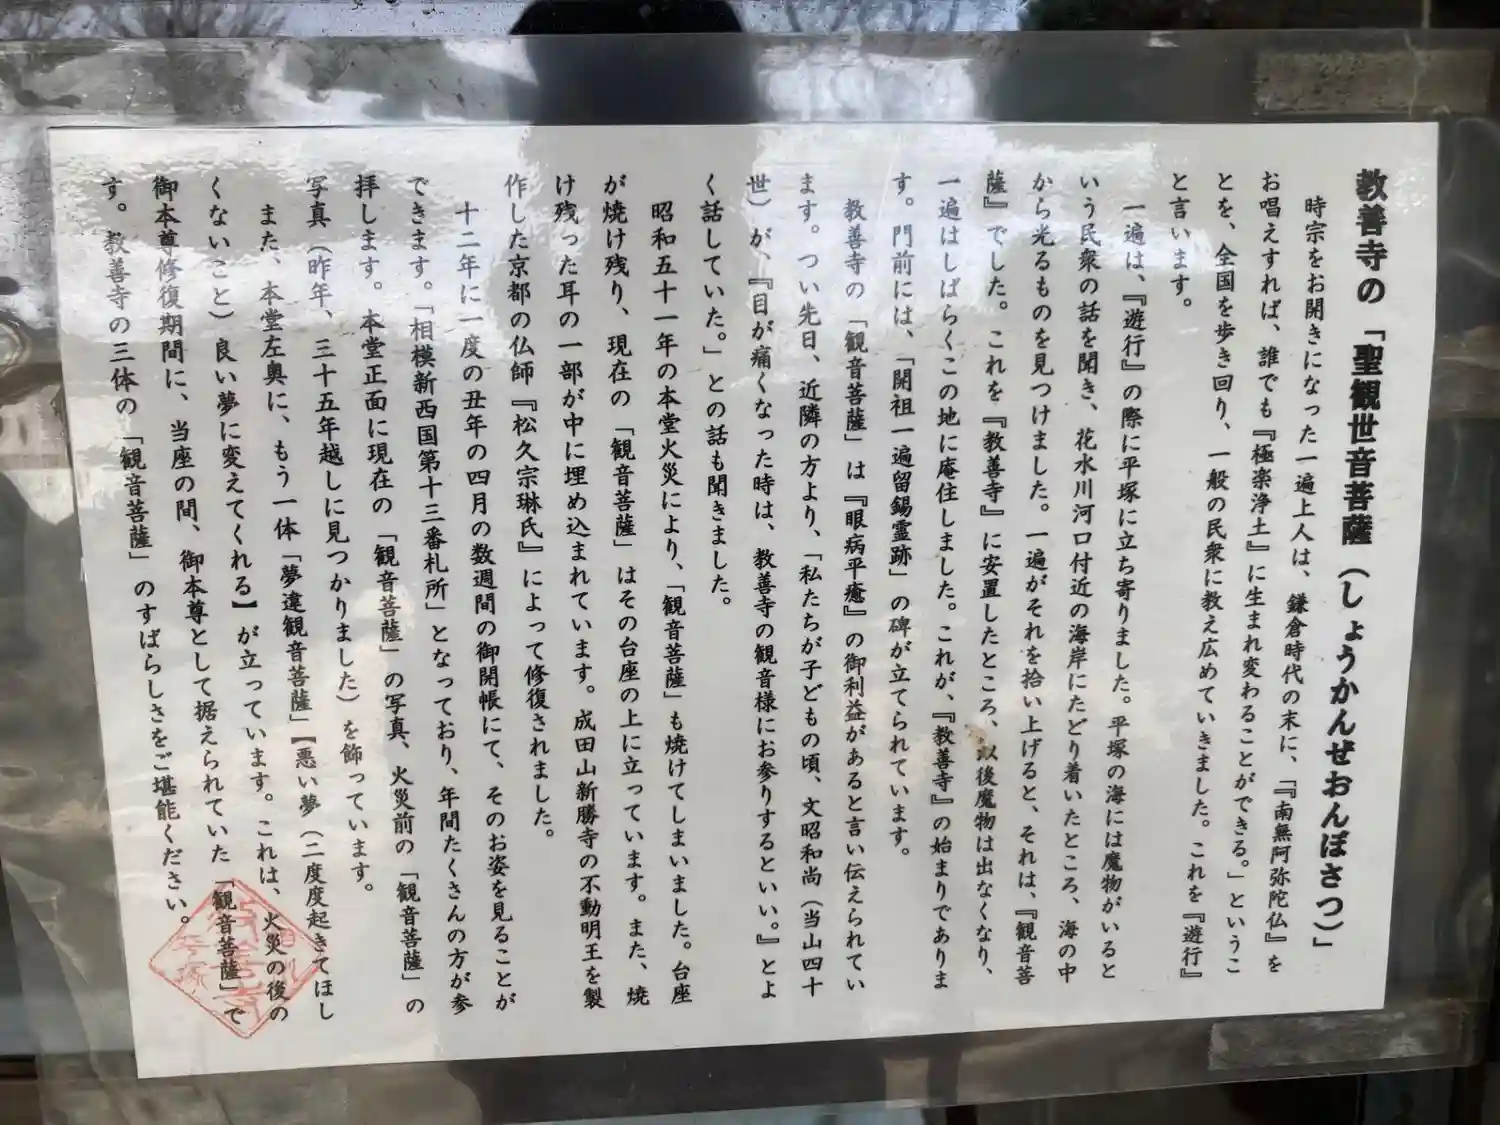 教善寺の「聖観世音菩薩（しょうかんぜおんぼさつ）」
時宗をお開きになった一遍上人は、鎌倉時代の末に、『南無阿弥陀仏』を
お唱えすれば、誰でも『極楽浄土』に生まれ変わることができる。」というこ
とを、全国を歩き回り、一般の民衆に教え広めていきました。これを『遊行』
と言います。
一遍は、『遊行』の際に平塚に立ち寄りました。平塚の海には魔物がいると
いう民衆の話を聞き、花水川河口付近の海岸にたどり着いたところ、海の中
から光るものを見つけました。一遍がそれを拾い上げると、それは、『観音菩
薩』でした。これを『教善寺』に安置したところ、以後魔物は出なくなり、
一遍はしばらくこの地に庵住しました。これが、『教善寺』の始まりでありま
す。門前には、「開祖一遍留錫霊跡」の碑が立てられています。
教善寺の「観音菩薩」は『眼病平癒』の御利益があると言い伝えられてい
ます。つい先日、近隣の方より、「私たちが子どもの頃、文昭和尚（当山四十
世）が、『目が痛くなった時は、教善寺の観音様にお参りするといい。』とよ
く話していた。」との話も聞きました。
昭和五十一年の本堂火災により、「観音菩薩」も焼けてしまいました。台座
が焼け残り、現在の「観音菩薩」はその台座の上に立っています。また、焼
け残った耳の一部が中に埋め込まれています。成田山新勝寺の不動明王を製
作した京都の仏師『松久宗琳氏』によって修復されました。
十二年に一度の丑年の四月の数週間の御開帳にて、そのお姿を見ることが
できます。「相模新西国第十三番札所」となっており、年間たくさんの方が参
拝します。本堂正面に現在の「観音菩薩」の写真、火災前の「観音菩薩」の
写真（昨年、三十五年越しに見つかりました）を飾っています。
また、本堂左奥に、もう一体「夢違観音菩薩」【悪い夢（二度度起きてほし
くないこと）良い夢に変えてくれる】が立っています。これは、火災の後の
御本尊修復期間に、当座の間、御本尊として据えられていた「観音菩薩」で
す。教善寺の三体の「観音菩薩」のすばらしさをご堪能ください。